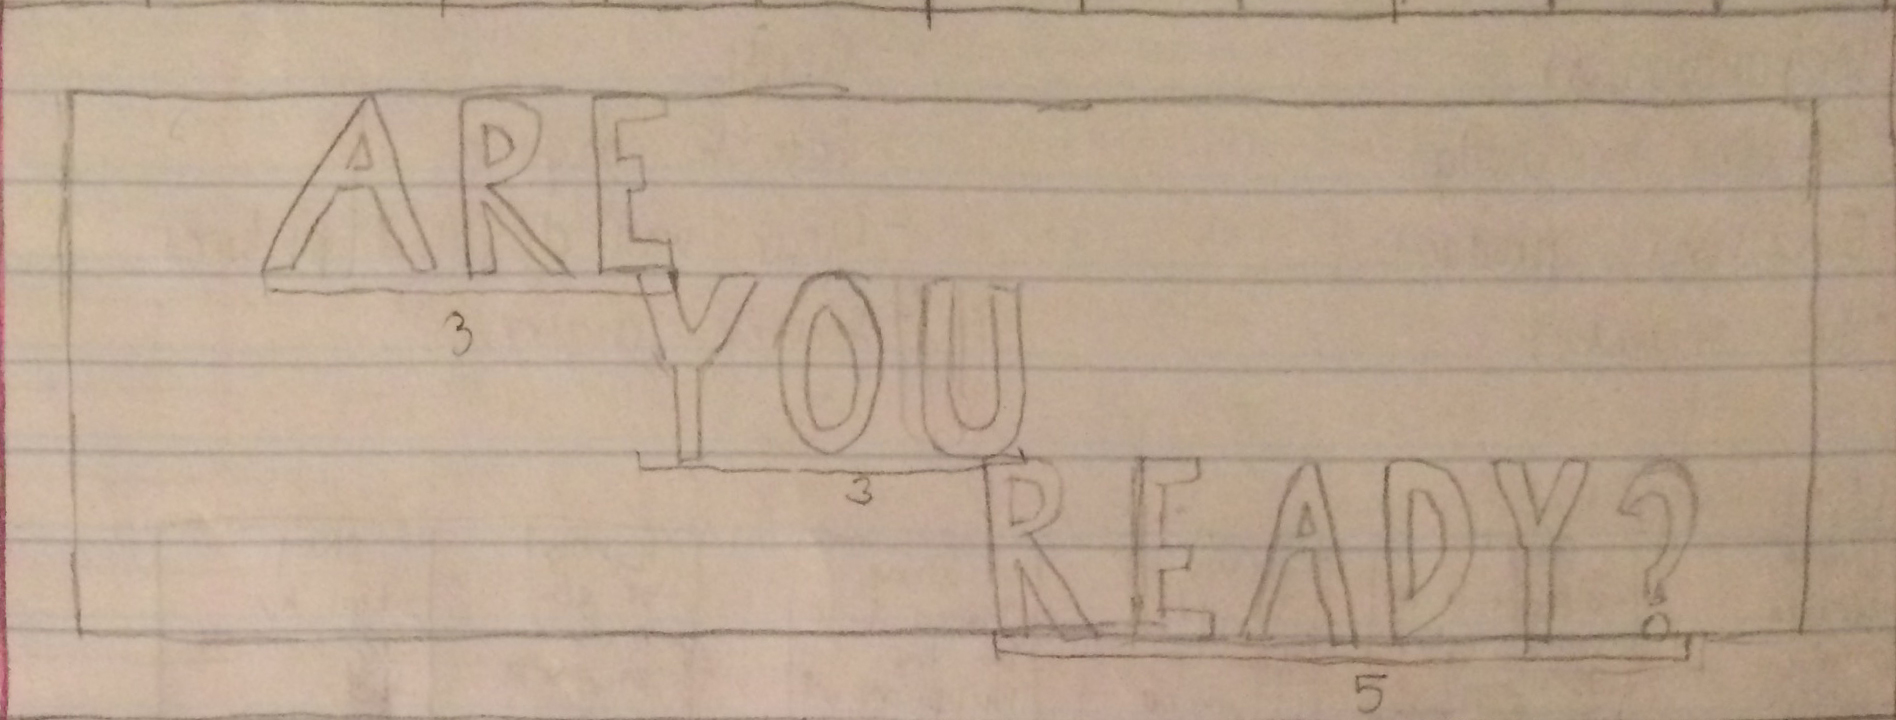 ARE
3
YOU
3
READY?
5